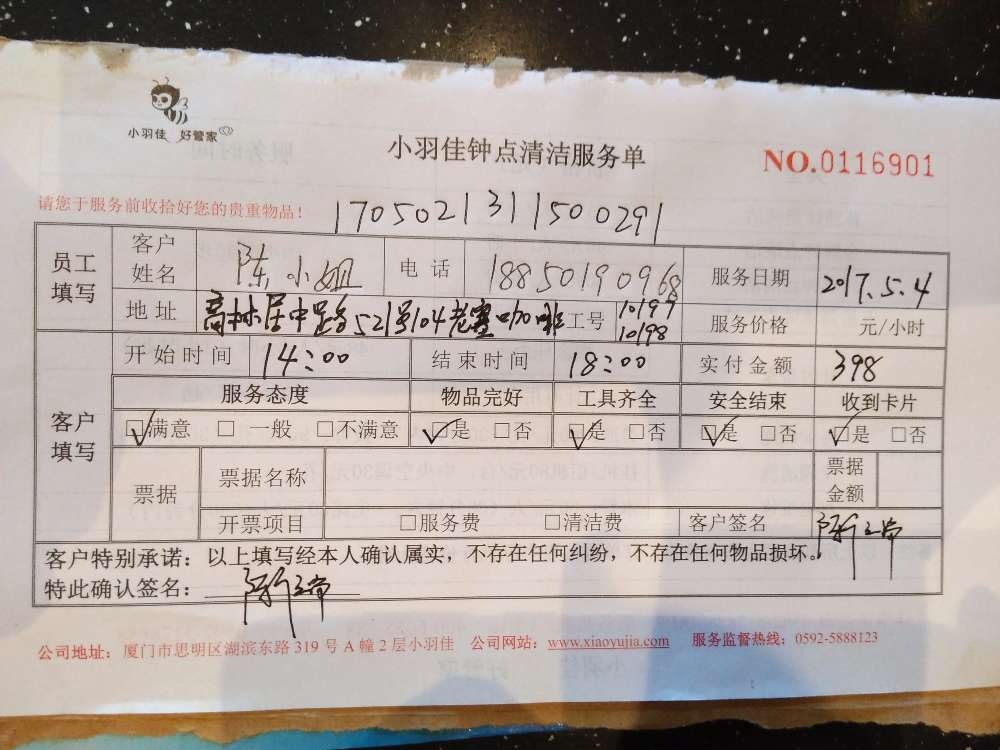 小羽佳 好管家
小羽佳钟点清洁服务单
NO.0116901
请您于服务前收拾好您的贵重物品！
1705021311500291
员工填写 客户姓名 陈小姐 电话 18850190968 服务日期 2017.5.4
地址 高林居中路521号104老塞咖啡 工号 10197 10198 服务价格 元/小时
客户填写 开始时间 14:00 结束时间 18:00 实付金额 398
服务态度 物品完好 工具齐全 安全结束 收到卡片
☑满意 □一般 □不满意 ☑是 □否 ☑是 □否 ☑是 □否 ☑是 □否
票据 票据名称 票据金额
开票项目 □服务费 □清洁费 客户签名
客户特别承诺：以上填写经本人确认属实，不存在任何纠纷，不存在任何物品损坏。
特此确认签名：
公司地址：厦门市思明区湖滨东路319号A幢2层小羽佳 公司网站：www.xiaoyujia.com 服务监督热线：0592-5888123